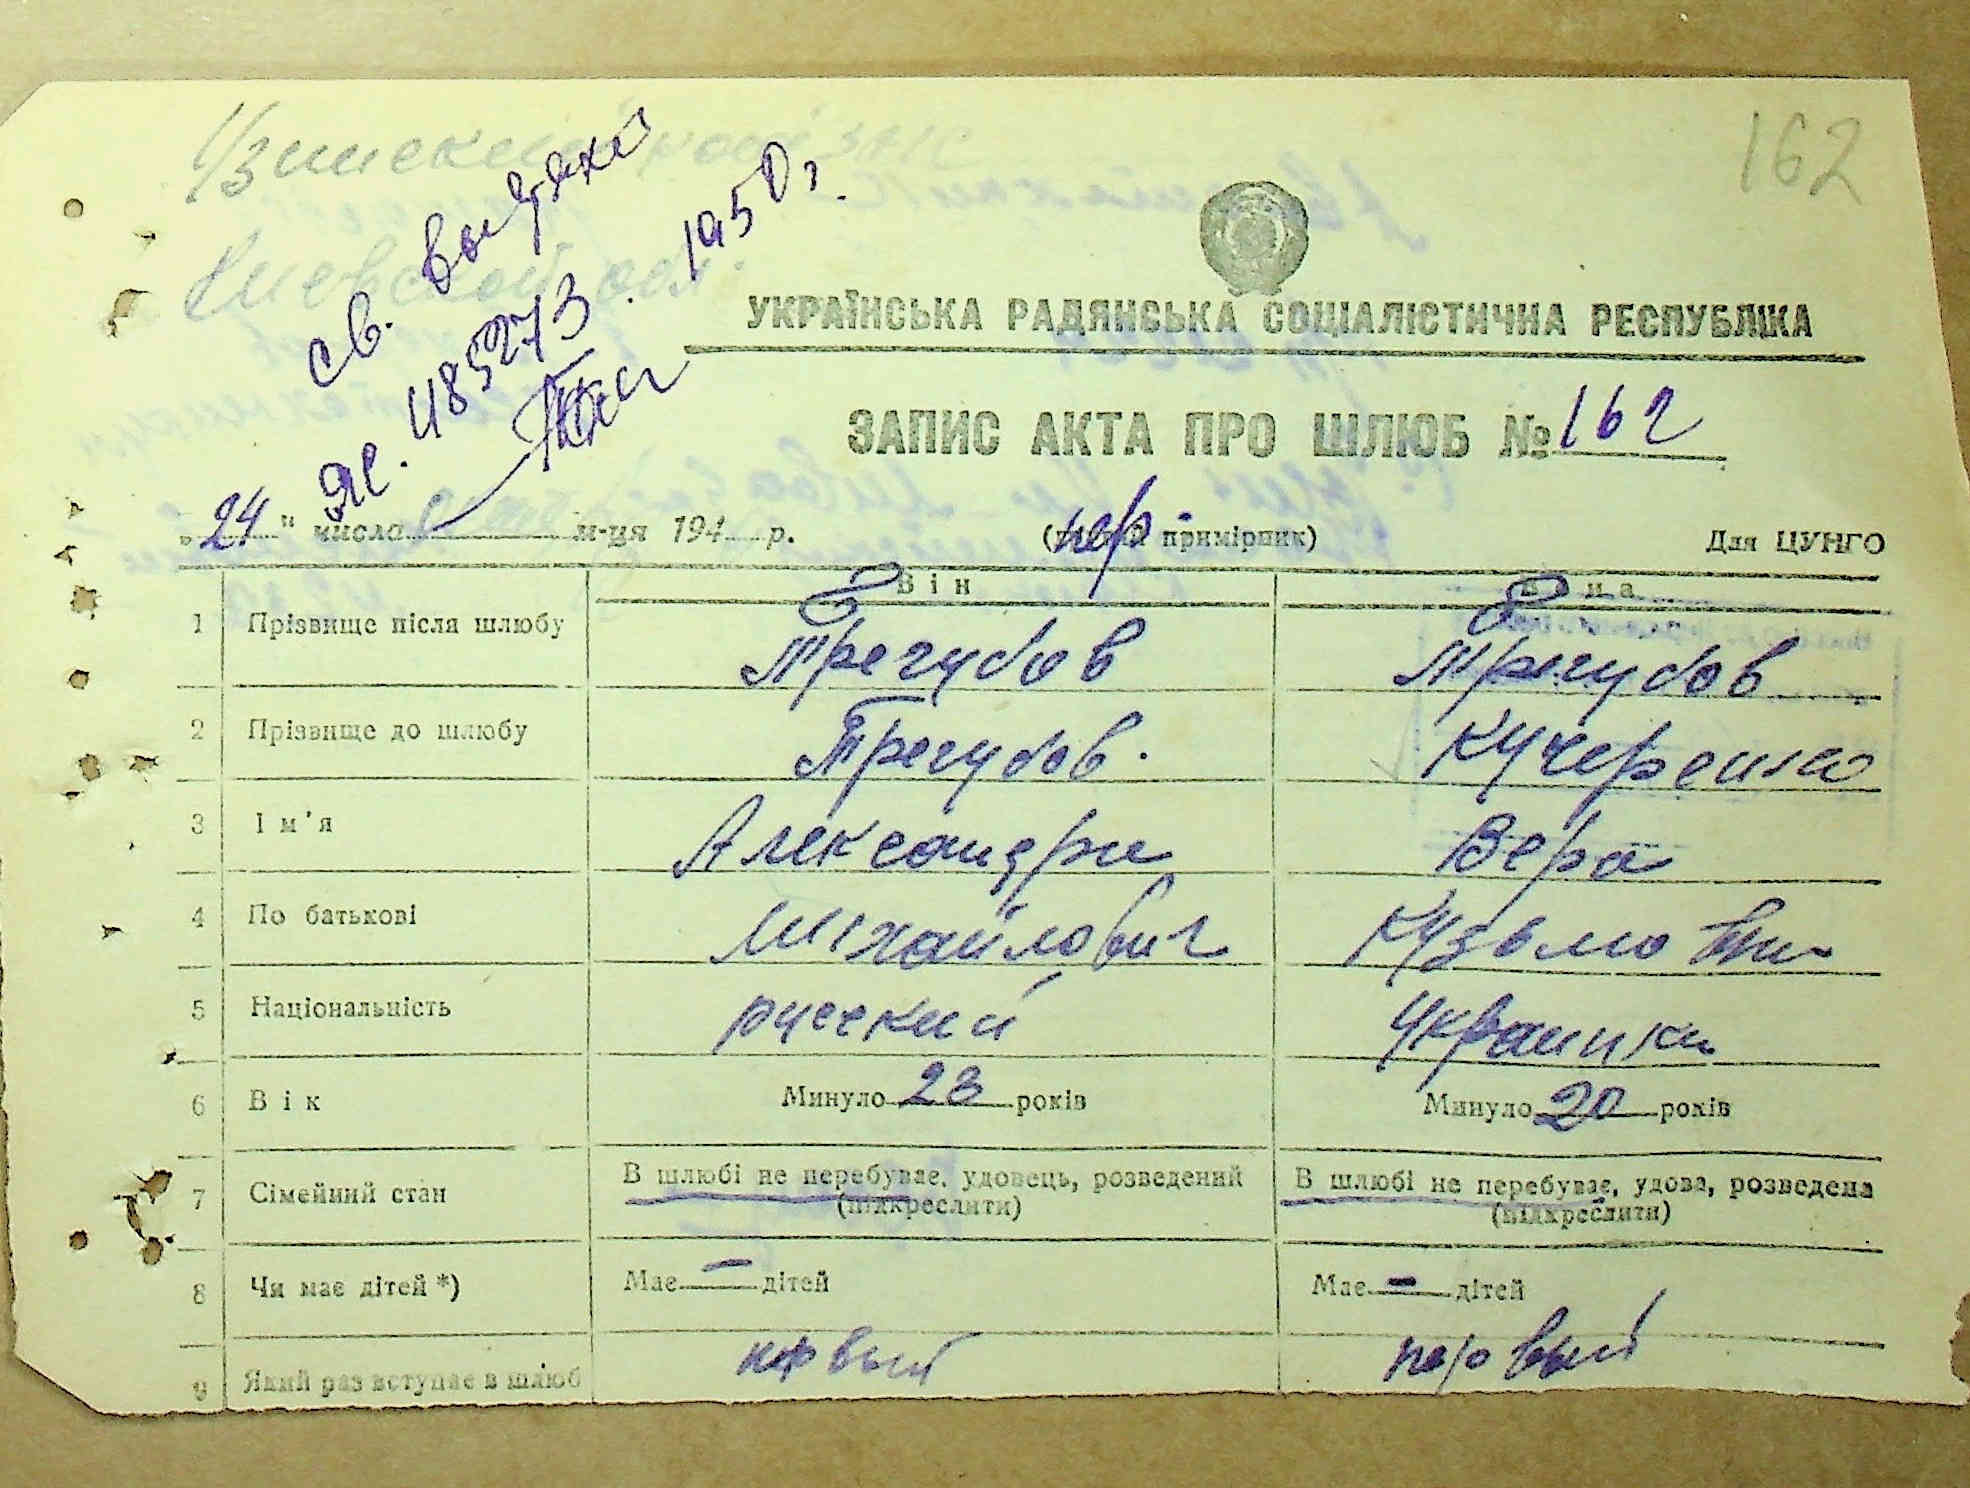 162
Киевской обл.
св. выдяхо
ЯЕ. 485273. 1950 г.
УКРАЇНСЬКА РАДЯНСЬКА СОЦІАЛІСТИЧНА РЕСПУБЛІКА
ЗАПИС АКТА ПРО ШЛЮБ № 162
„24" числа м-ця 194 р. (пер. примірник) Для ЦУНГО
Він Вона
1 Прізвище після шлюбу Трегубов Трегубов
2 Прізвище до шлюбу Трегубов. Кучеренко
3 Ім'я Александр Вера
4 По батькові Міхайлович Кузьмо
5 Національність русский Украинка
6 Вік Минуло 23 років Минуло 20 років
7 Сімейний стан В шлюбі не перебуває, удовець, розведений (підкреслити) В шлюбі не перебуває, удова, розведена (підкреслити)
8 Чи має дітей *) Має — дітей Має — дітей
9 Який раз вступає в шлюб первый первый